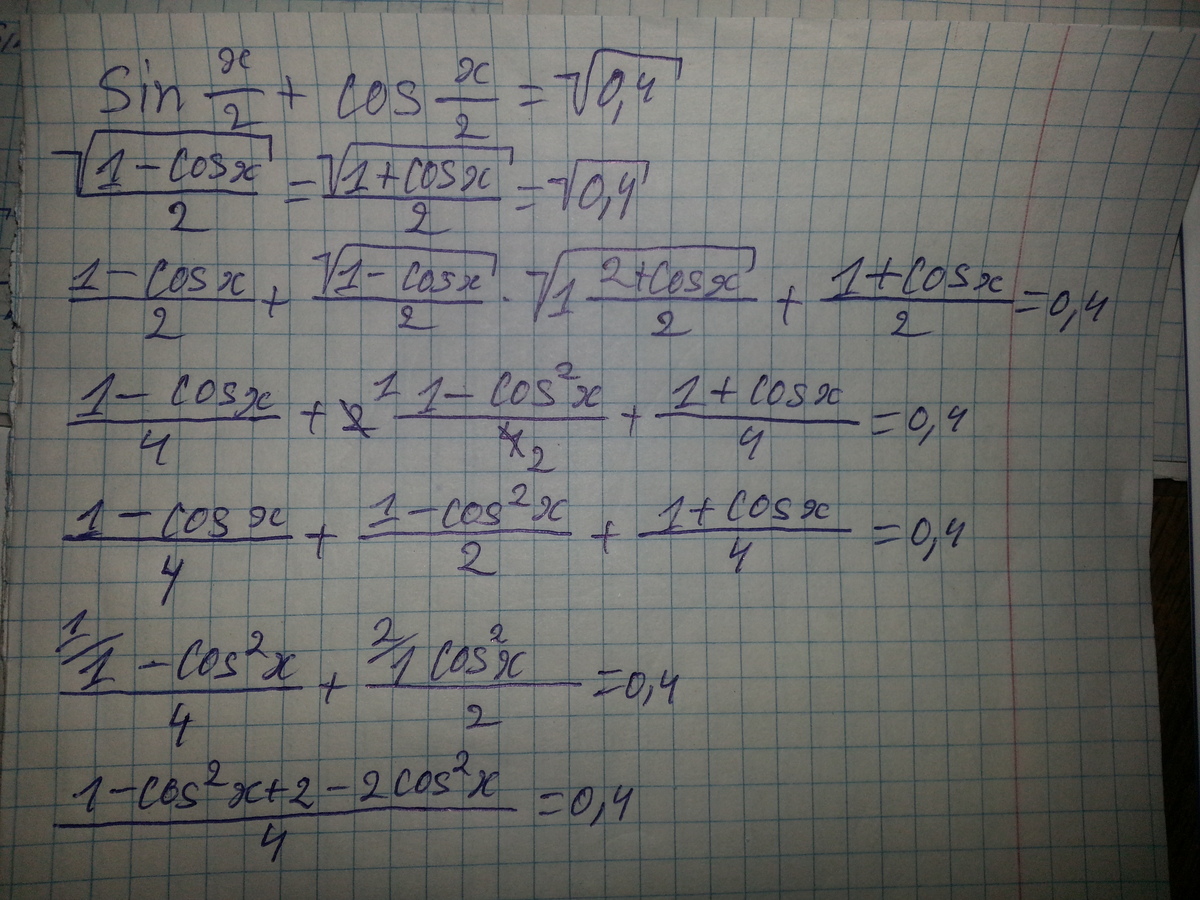 Sin x/2 + cos x/2 = √0,4
√(1-cosx)/2 = √(1+cosx)/2 = √0,4
1-cosx/2 + √(1-cosx)/2 · √(1 2+cosx)/2 + 1+cosx/2 = 0,4
1-cosx/4 + 2 1 1-cos²x/4 2 + 1+cosx/4 = 0,4
1-cosx/4 + 1-cos²x/2 + 1+cosx/4 = 0,4
1/ 1-cos²x/4 + 2/ 1 cos²x/2 = 0,4
1-cos²x+2-2cos²x/4 = 0,4